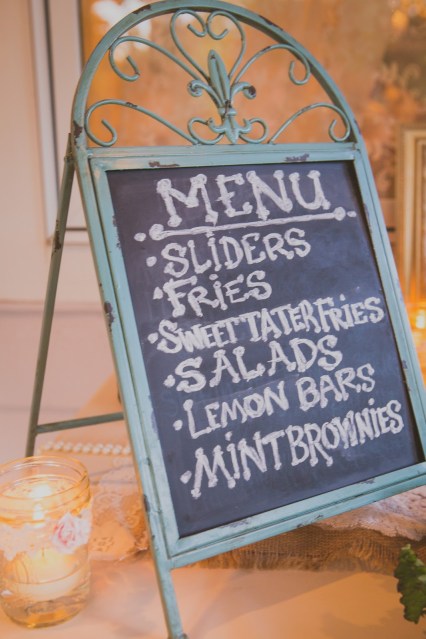 MENU
• SLIDERS
• FRIES
• SWEET TATER FRIES
• SALADS
• LEMON BARS
• MINT BROWNIES